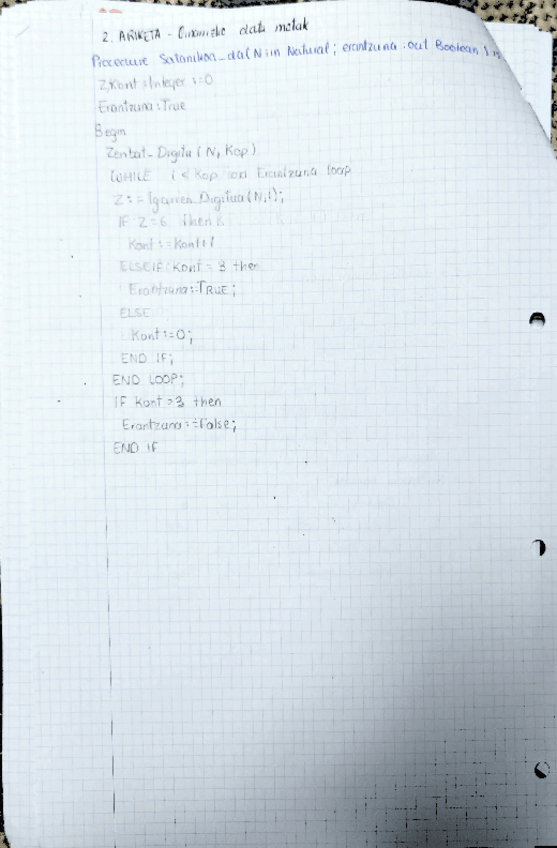 2. ARIKETA - Oinarrizko datu motak
Procedure Satanikoa_da(N:in Natural; erantzuna:out Boolean) is
Z,Kont:Integer:=0
Erantzuna:True
Begin
Zenbat-Digitu(N, Kop)
WHILE i < Kop Erantzuna loop
Z:=Igarren_Digitua(N,i);
IF Z=6 then
Kont:=Kont+1
ELSEIF Kont = 3 then
Erantzuna:=TRUE;
ELSE
Kont:=0;
END IF;
END LOOP;
IF Kont=3 then
Erantzuna:=False;
END IF